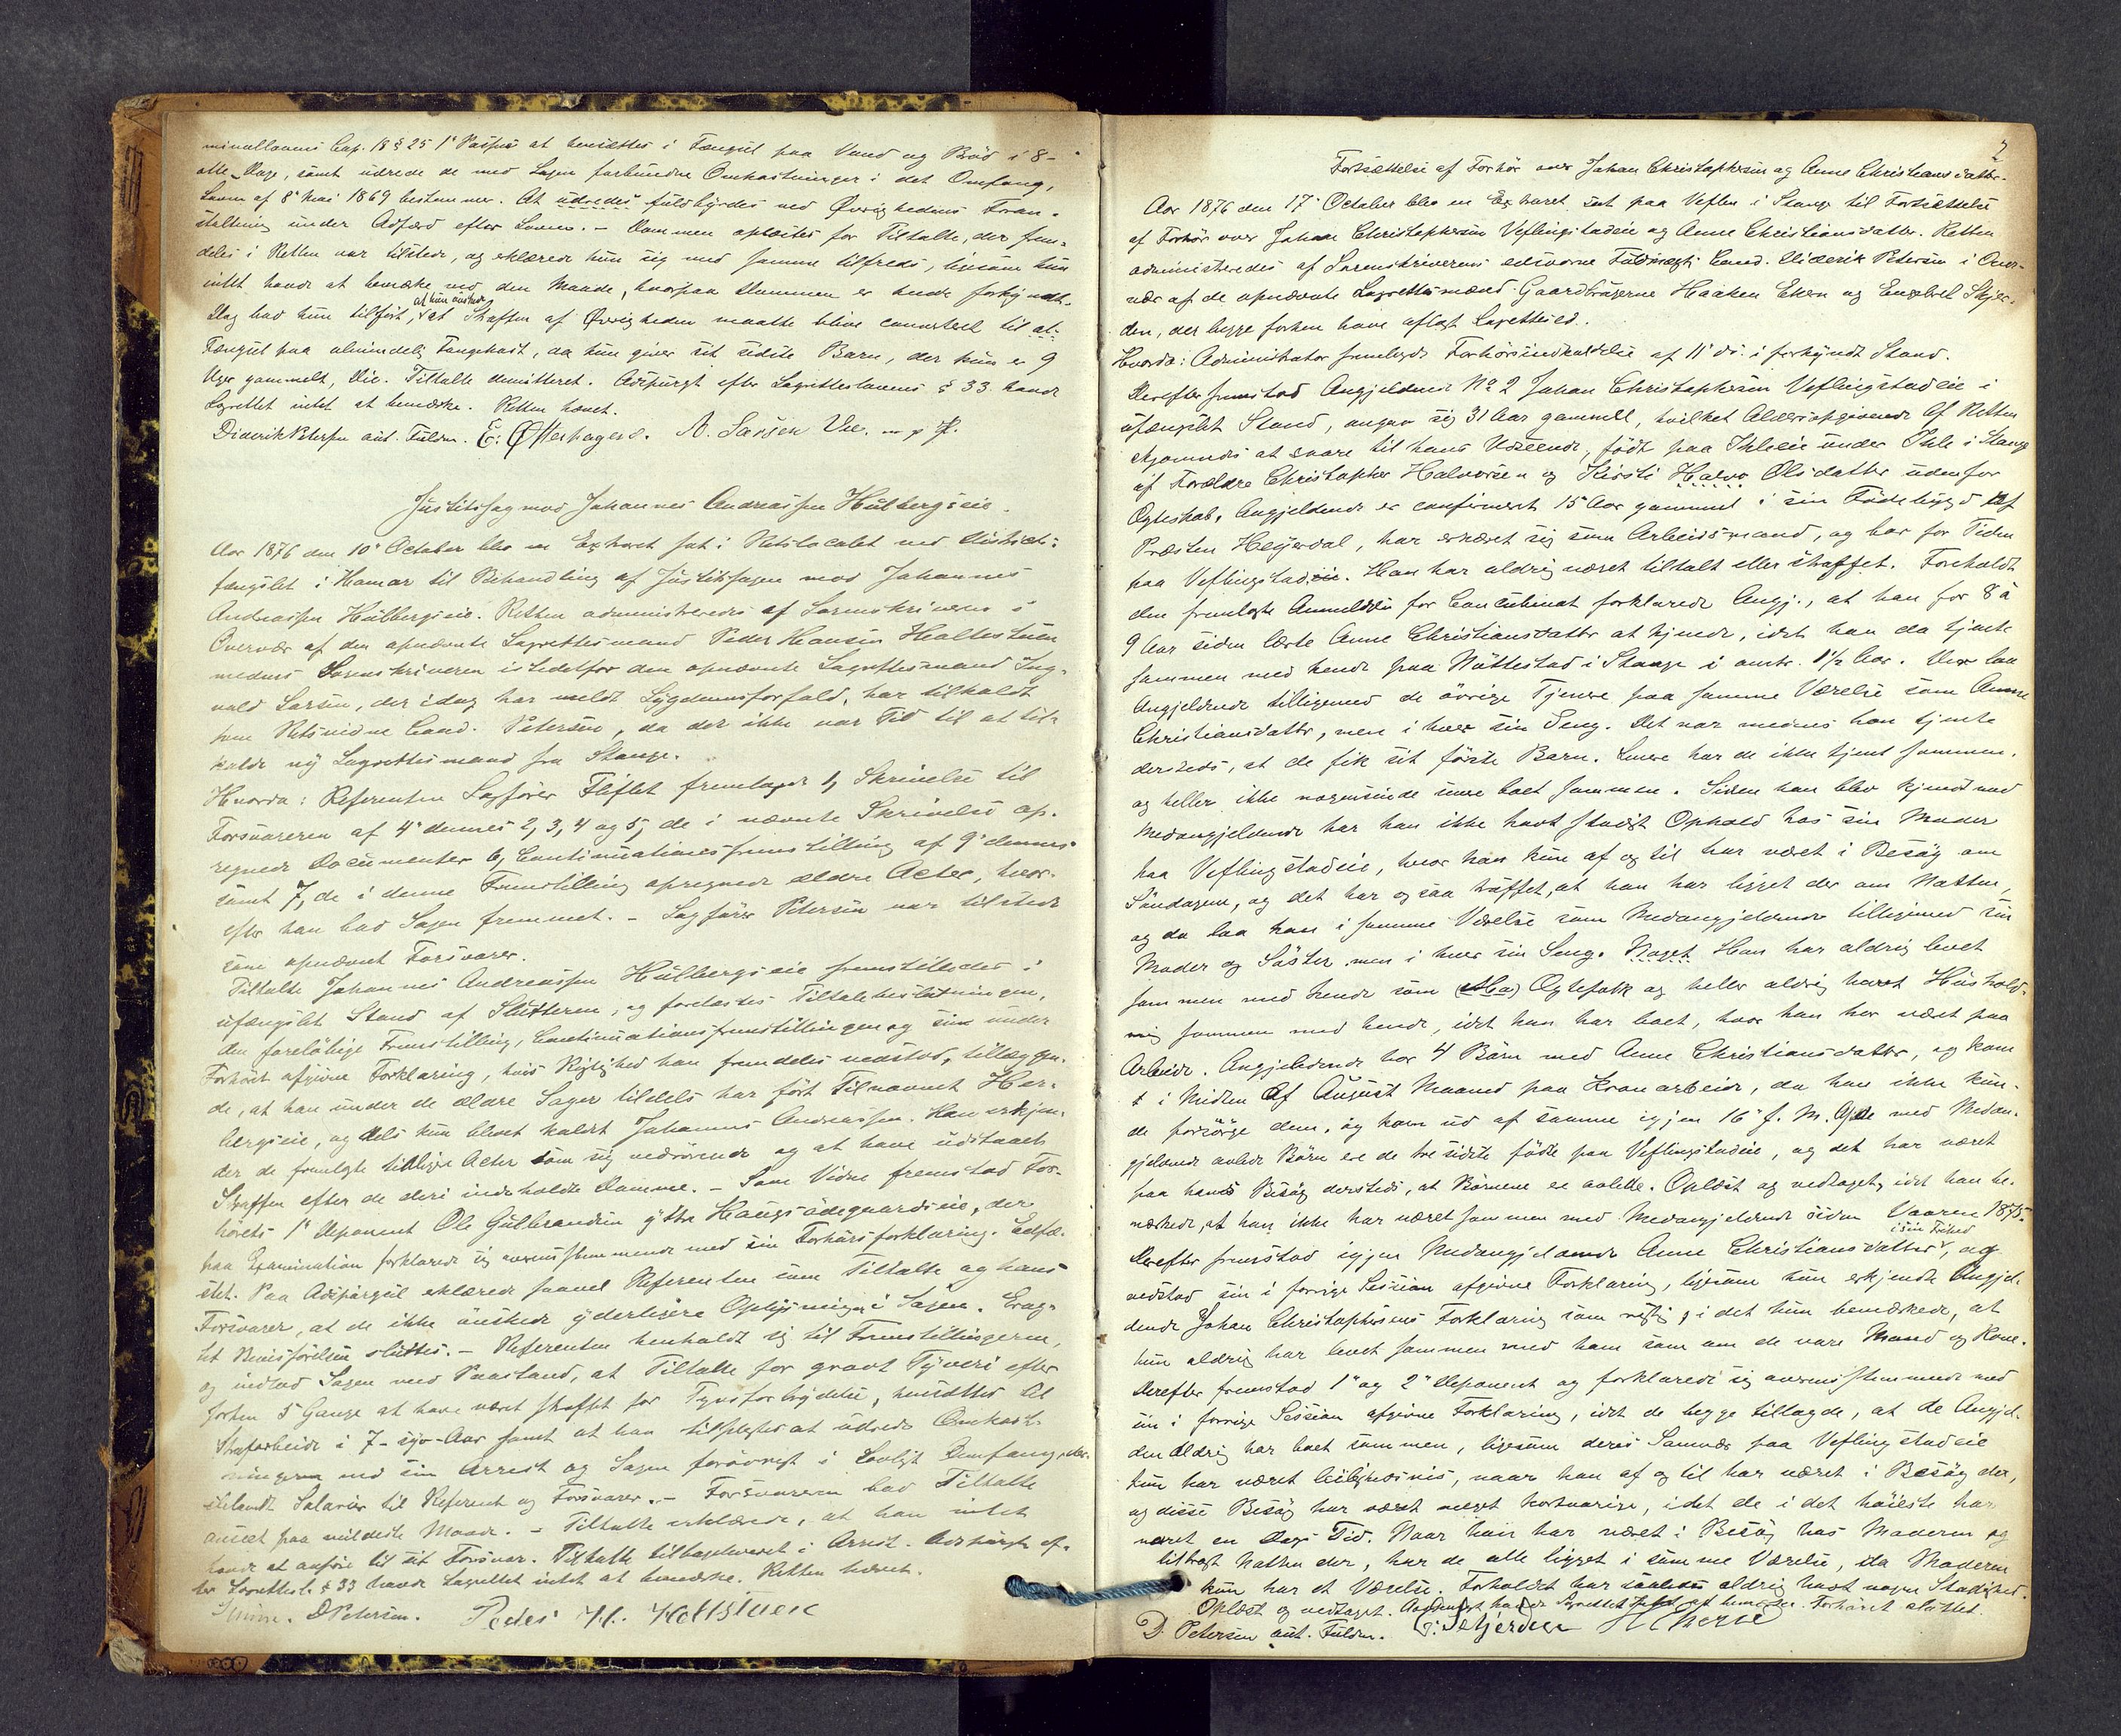 minallovens Cap. 18 § 25 1' Passus at hensættes i Fængsel paa Vand og Brød i 8-
otte Dage, samt udrede de med Sagen forbundne Omkostninger i det Omfang,
Loven af 8' Mai 1869 bestemmer. At udredes fuldbyrdes ved Øvrighedens Foran-
staltning under Adfærd efter Loven. - Dommen oplæstes for Tiltalte, der frem-
deles i Retten var tilstede, og erklærede hun sig med samme tilfreds, ligesom hun
intet havde at bemærke mod den Maade, hvorpaa Dommen er hende forkyndt.
Dog bad hun tilført, at hun ønskede at Straffen af Øvrigheden maatte blive converteret til al-
Fængsel paa almindelig Fangekost, da hun giver sit sidste Barn, der kun er 9
Uger gammelt, Die. Tiltalte demitteret. Adspurgt efter Lagrettelovens § 33 havde
Lagrettet intet at bemærke. Retten hævet.
Diderik Petersen aut. Fuldm. E. Østerhagen. A. Larsen
Justitssag mod Johannes Andreassen Hulbergseie.
Aar 1876 den 10' October blev en Extraret sat i Retslocalet ved Distrikts-
fængslet i Hamar til Behandling af Justitssagen mod Johannes
Andreassen Hulbergseie. Retten administreredes af Sorenskriveren i
Overvær af den opnævnte Lagrettesmand Peder Hansen Holtestuen
medens Sorenskriveren istedetfor den opnævnte Lagrettesmand Ing-
vald Larsen, der idag har meldt Sygdomsforfald, har tilkaldt
som Retsvidne Cand. Petersen, da der ikke var Tid til at til-
kalde ny Lagrettesmand fra Stange.
Hvorda: Referenten Sagfører Fliflet fremlagde 1, Skrivelse til
Forsvareren af 4' dennes 2, 3, 4 og 5, de i nævnte Skrivelse op-
regnede Documenter 6, Continuationsfremstilling af 9' dennes
samt 7, de i denne Fremstilling opregnede ældre Acter, hvor-
efter han bad Sagen fremmet. - Sagfører Petersen var tilstede
som opnævnt Forsvarer.
Tiltalte Johannes Andreassen Hulbergseie fremstilledes i
ufængslet Stand af Slutteren, og forelæstes Tiltalebeslutningen,
den foreløbige Fremstilling, Continuationsfremstillingen og sin under
Forhøret afgivne Forklaring, hvis Rigtighed han fremdeles vedstod, tillæggen-
de, at han under de ældre Sager tildels har ført Tilnavnet Her-
bergseie, og dels kun blevet kaldt Johannes Andreassen. Han erkjen-
der de fremlagte tidligere Acter som sig vedrørende og at have udstaaet
Straffen efter de deri indeholdte Domme. - Som Vidne fremstod For-
hørets 1' Deponent Ole Gulbrandsen ytre Haugsødegaardseie, der
paa Examination forklarede sig overensstemmende med sin Forhørsforklaring. Edfæ-
stet. Paa Adspørgsel erklærede saavel Referenten som Tiltalte og hans
Forsvarer, at de ikke ønskede yderligere Oplysninger i Sagen. Erag-
tet Bevisførelsen sluttes. - Referenten henholdt sig til Fremstillingerne,
og indlod Sagen med Paastand, at Tiltalte for grovt Tyveri efter
forhen 5 Gange at have været straffet for Tyvsforbrydelse, hensættes til
Strafarbeide i 7 - syv - Aar samt at han tilpligtes at udrede Omkost-
ningerne ved sin Arrest og Sagen forøvrigt i Lovligt Omfang, der-
iblandt Salarier til Referent og Forsvarer. - Forsvareren bad Tiltalte
anseet paa mildeste Maade. - Tiltalte erklærede, at han intet
havde at anføre til sit Forsvar. Tiltalte tilbageleveret i Arrest. Adspurgt ef-
ter Lagrettesl. § 33 havde Lagrettet intet at bemærke. Retten hævet.
D Petersen. Peder H. Holtstuen
2
Fortsættelse af Forhør over Johan Christophersen og Anne Christiansdatter.
Aar 1876 den 17' October blev en Extraret sat paa Veflen i Stange til Fortsættelse
af Forhør over Johan Christophersen Veflingstadeie og Anne Christiansdatter. Retten
administreredes af Sorenskriverens edsvorne Fuldmægt. Cand. Diderik Petersen i Over-
vær af de opnævnte Lagrettesmænd Gaardbrugerne Haaken Ekern og Engebret Skjer-
den, der begge forhen have aflagt Lagrettesed.
Hvorda: Administrator fremlagde Forhørsindkaldelse af 11' ds. i forkyndt Stand.
Derefter fremstod Angjeldende No 2 Johan Christophersen Veflingstadeie i
ufængslet Stand, angav sig 31 Aar gammel, hvilket Aldersopgivende af Retten
skjønnedes at svare til hans Udseende, født paa Ihleeie under Ihle i Stange
af Forældre Christopher Halvorsen og Kirsti Halvo Olsdatter udenfor
Ægteskab. Angjeldende er confirmeret 15 Aar gammel i sin Fødebygd af
Præsten Heyerdal, har ernæret sig som Arbeidsmand, og bor for Tiden
paa Veflingstadeie. Han har aldrig været tiltalt eller straffet. Foreholdt
den fremlagte Anmeldelse for Concubinat forklarede Angj., at han for 8 à
9 Aar siden lærte Anne Christiansdatter at kjende, idet han da tjente
sammen med hende paa Nøttestad i Stange i omtr. 1 1/2 Aar. Der laa
Angjeldende tilligemed de øvrige Tjenere paa samme Værelse som Anne
Christiansdatter, men i hver sin Seng. Det var medens han tjente
dersteds, at de fik sit første Barn. Senere har de ikke tjent sammen,
og heller ikke nogensinde senere boet sammen. Siden han blev kjendt med
Medangjeldende har han ikke havt stadigt Ophold hos sin Moder
paa Veflingstadeie, hvor han kun af og til har været i Besøg om
Søndagene, og det har ogsaa truffet, at han har ligget der om Natten,
og da laa han i samme Værelse som Medangjeldende tilligemed sin
Moder og Søster men i hver sin Seng. Noget Han har aldrig levet
sammen med hende som Ægtefolk og heller aldrig havt Hushold-
ning sammen med hende, idet han har boet, hvor han har været paa
Arbeide. Angjeldende har 4 Børn med Anne Christiansdatter, og kom
i Midten af August Maaned paa Tvangsarbeide, da han ikke kun-
de forsørge dem, og kom ud af samme igjen 16' f. M. Af de med Medan-
gjeldende avlede Børn ere de tre sidste fødte paa Veflingstadeie, og det har været
paa hans Besøg dersteds, at Børnene ere avlede. Oplæst og vedtaget, idet han be-
mærkede, at han ikke har været sammen med Medangjeldende siden Vaaren 1875.
Derefter fremstod igjen Medangjeldende Anne Christiansdatter i sin Frihed, og
vedstod sin i forrige Session afgivne Forklaring, ligesom hun erkjendte Angjel-
dende Johan Christophersens Forklaring som rigtig, idet hun bemærkede, at
hun aldrig har levet sammen med ham som om de vare Mand og Kone.
Derefter fremstod 1' og 2' Deponent og forklarede sig overensstemmende med
sin i forrige Session afgivne Forklaring, idet de begge tillagde, at de Angjel-
dende aldrig har boet sammen, ligesom deres Samvær paa Veflingstadeie
kun har været leilighedsvis, naar han af og til har været i Besøg der,
og disse Besøg har været meget kortvarige, idet de i det høieste har
varet en Dags Tid. Naar han har været i Besøg hos Moderen og
tilbragt Natten der, har de alle ligget i samme Værelse, da Moderen
kun har et Værelse. Forholdet har saaledes aldrig havt nogen Stadighed.
Oplæst og vedtaget. Adspurgt havde Lagrettet intet at bemærke. Forhøret sluttet.
D. Petersen aut. Fuldm. E. Skjerden H Ekeren